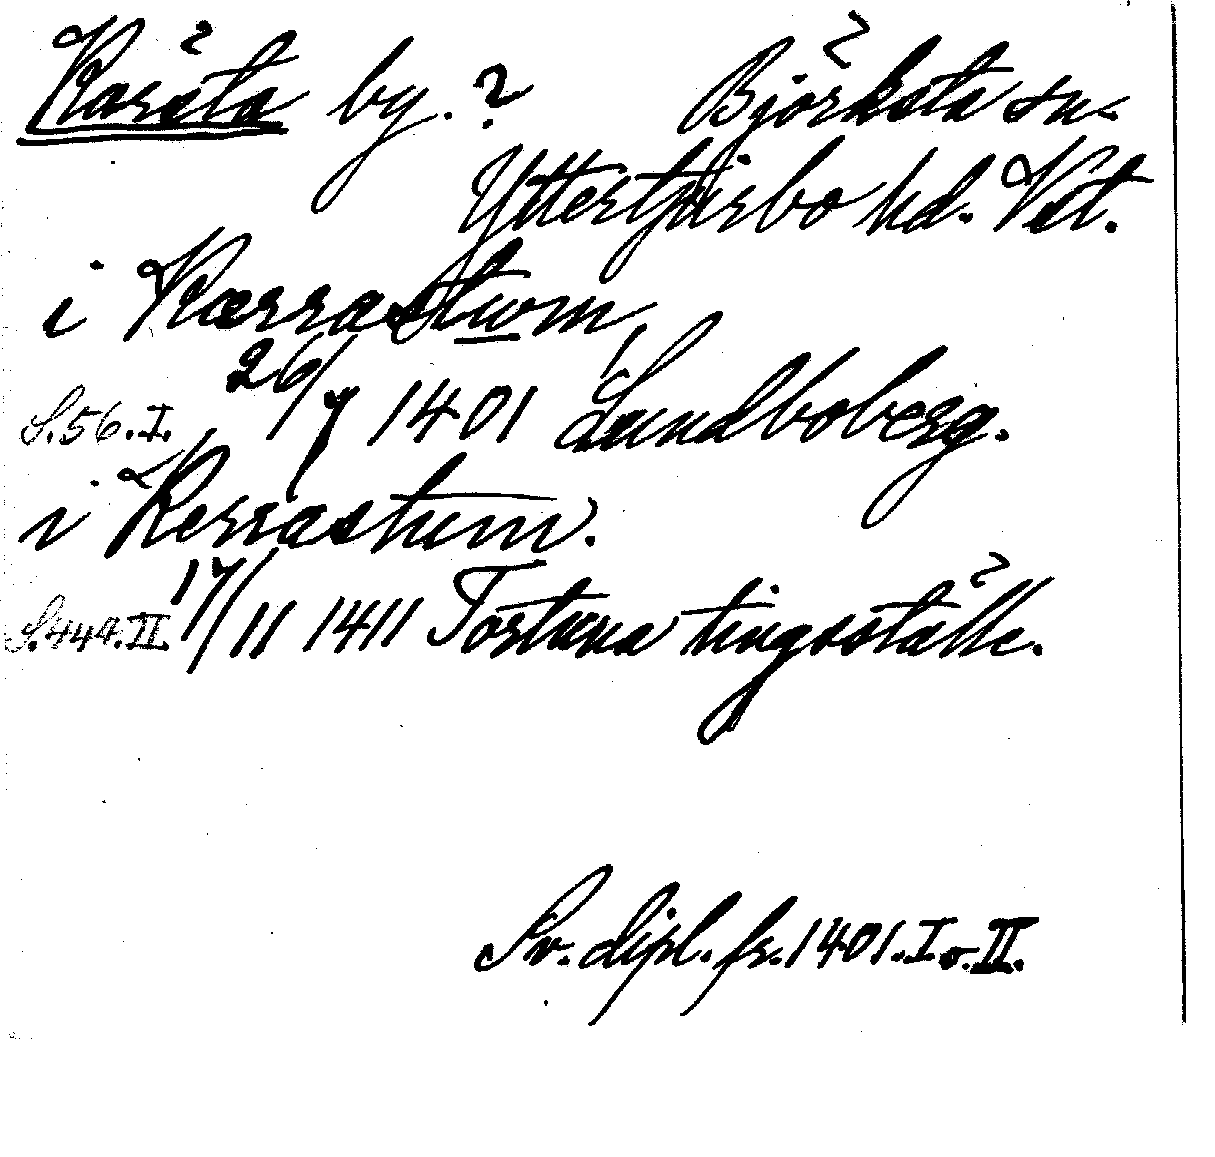 Karsta by. ? Björksta sn
Yttertjurbo hd. Vstl.
i Kærrastum,
26/7 1401 Lundboberg.
S.56.I.
i Kerrastum.
S.444.II. 17/11 1411 Torstuna tingsställe.
Sv. dipl. fr. 1401. I o. II.